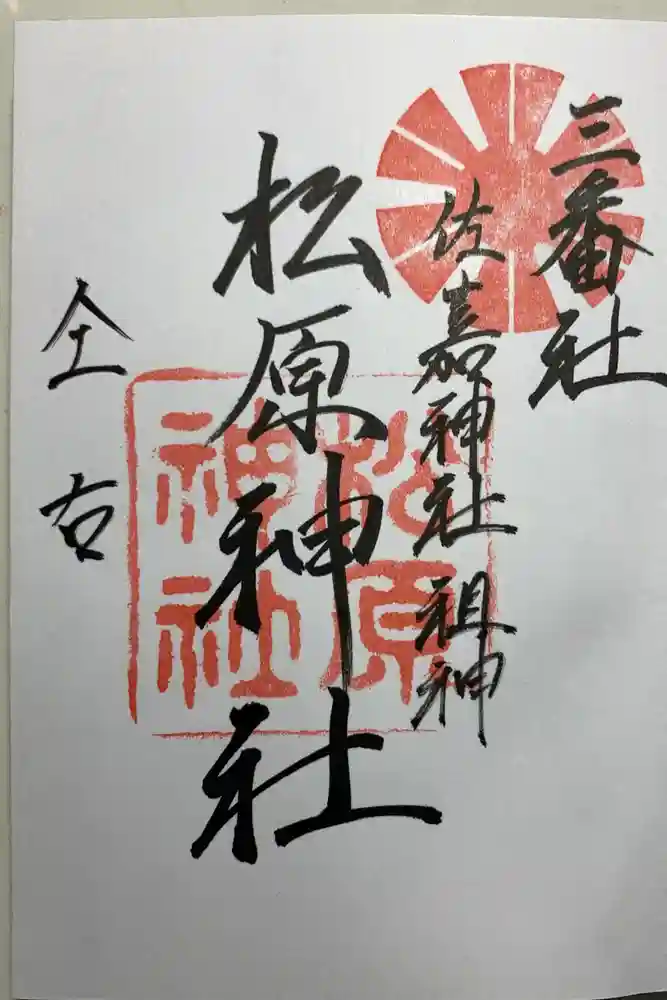 三番社
佐嘉神社祖神
松原神社
仝右
松原
神社